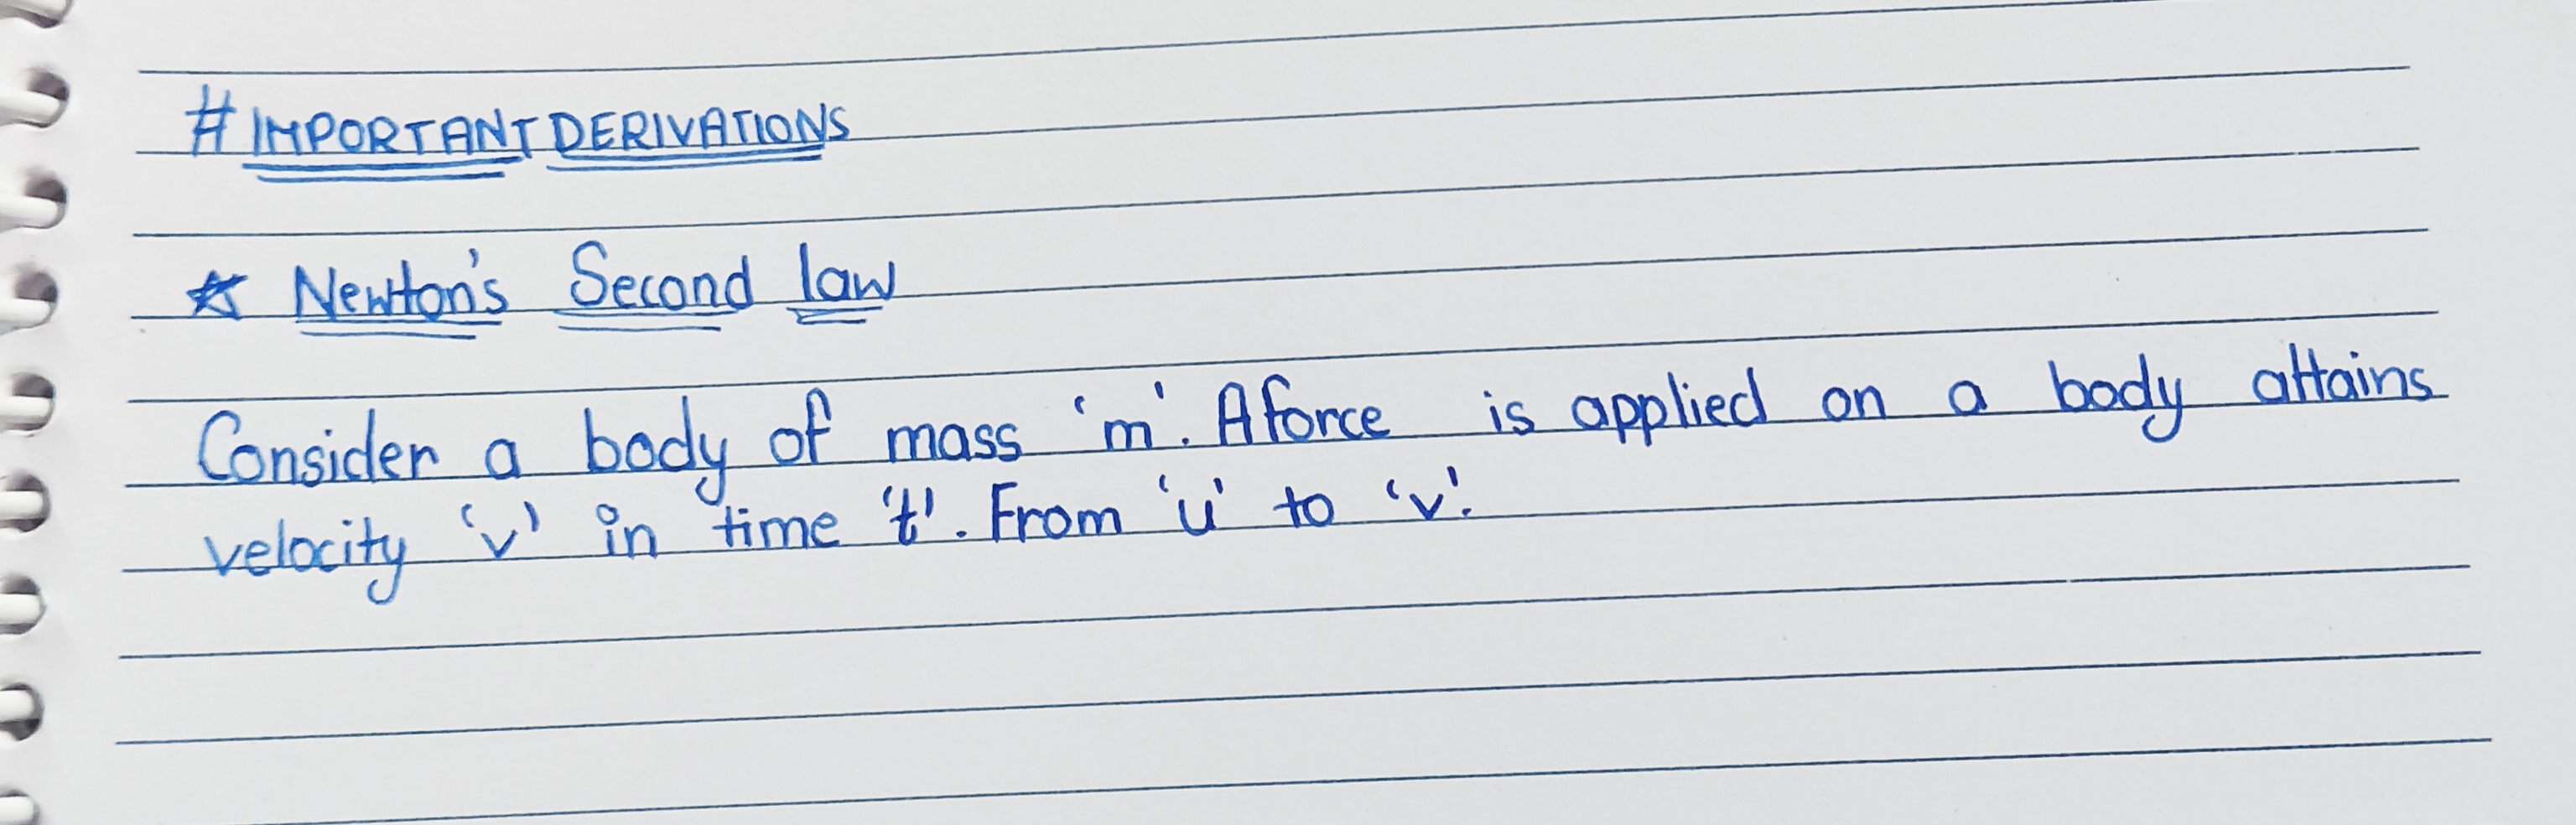 # IMPORTANT DERIVATIONS
☆ Newton's Second law
Consider a body of mass 'm'. A force is applied on a body attains
velocity 'v' in time 't'. From 'u' to 'v'.